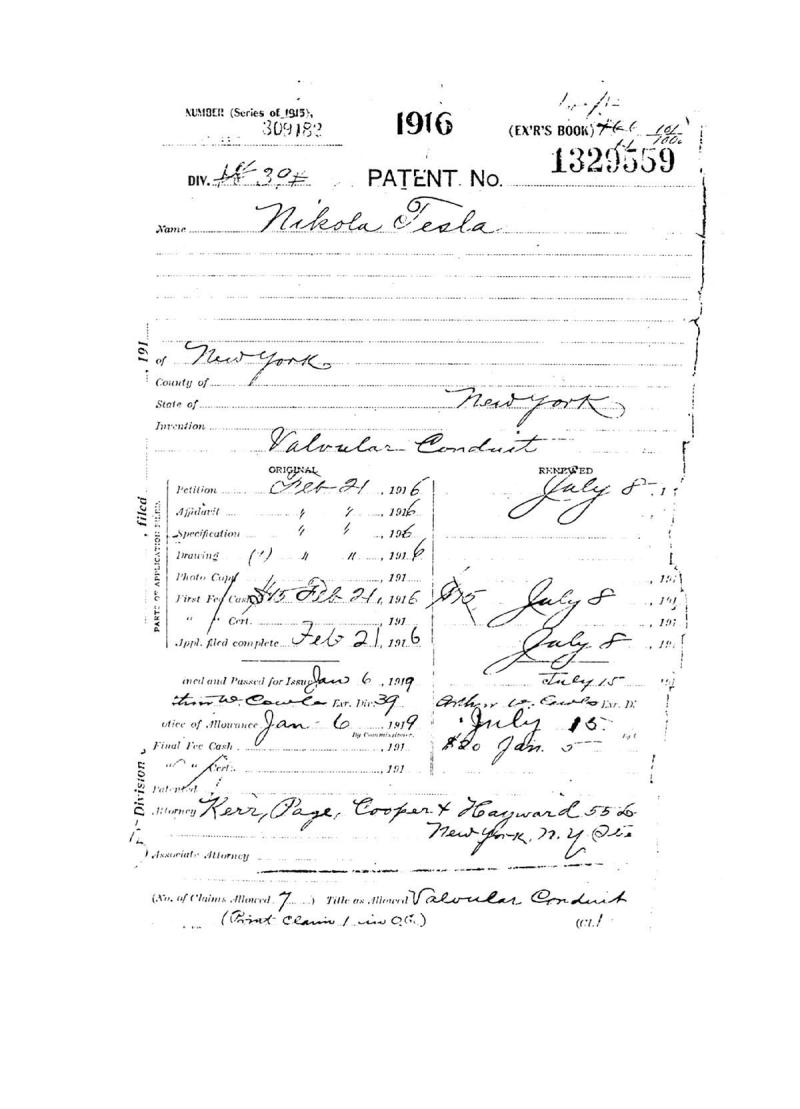 NUMBER (Series of 1915), 1916 (EX'R'S BOOK)
309182 1329559
DIV. 39 PATENT No.
Name Nikola Tesla
of New York
County of
State of New York
Invention
Valvular Conduit
ORIGINAL RENEWED
Petition Feb 21, 1916 July 8
Affidavit " ", 1916
Specification " ", 1916
Drawing (") " ", 1916
Photo Copy , 191
First Fee Cash $15 Feb 21, 1916 $15 July 8, 191
" Cert. 191
Appl. filed complete Feb 21, 1916 July 8, 191
PARTS OF APPLICATION FILED.
, 191
, filed
Division
ined and Passed for Issue Jan 6, 1919 July 15
thur W. Cowles Exr. Div. 39 Arthur W. Cowles Exr. D
otice of Allowance Jan 6 1919 July 15
By Commissioner.
Final Fee Cash , 191 $20 Jan. 5
" " Cert. , 191
Patented
Attorney Kerr, Page, Cooper & Hayward 55 L
New York, N.Y
Associate Attorney
(No. of Claims Allowed 7) Title as Allowed Valvular Conduit
(Print Claim 1 in O.G.) (Cl.